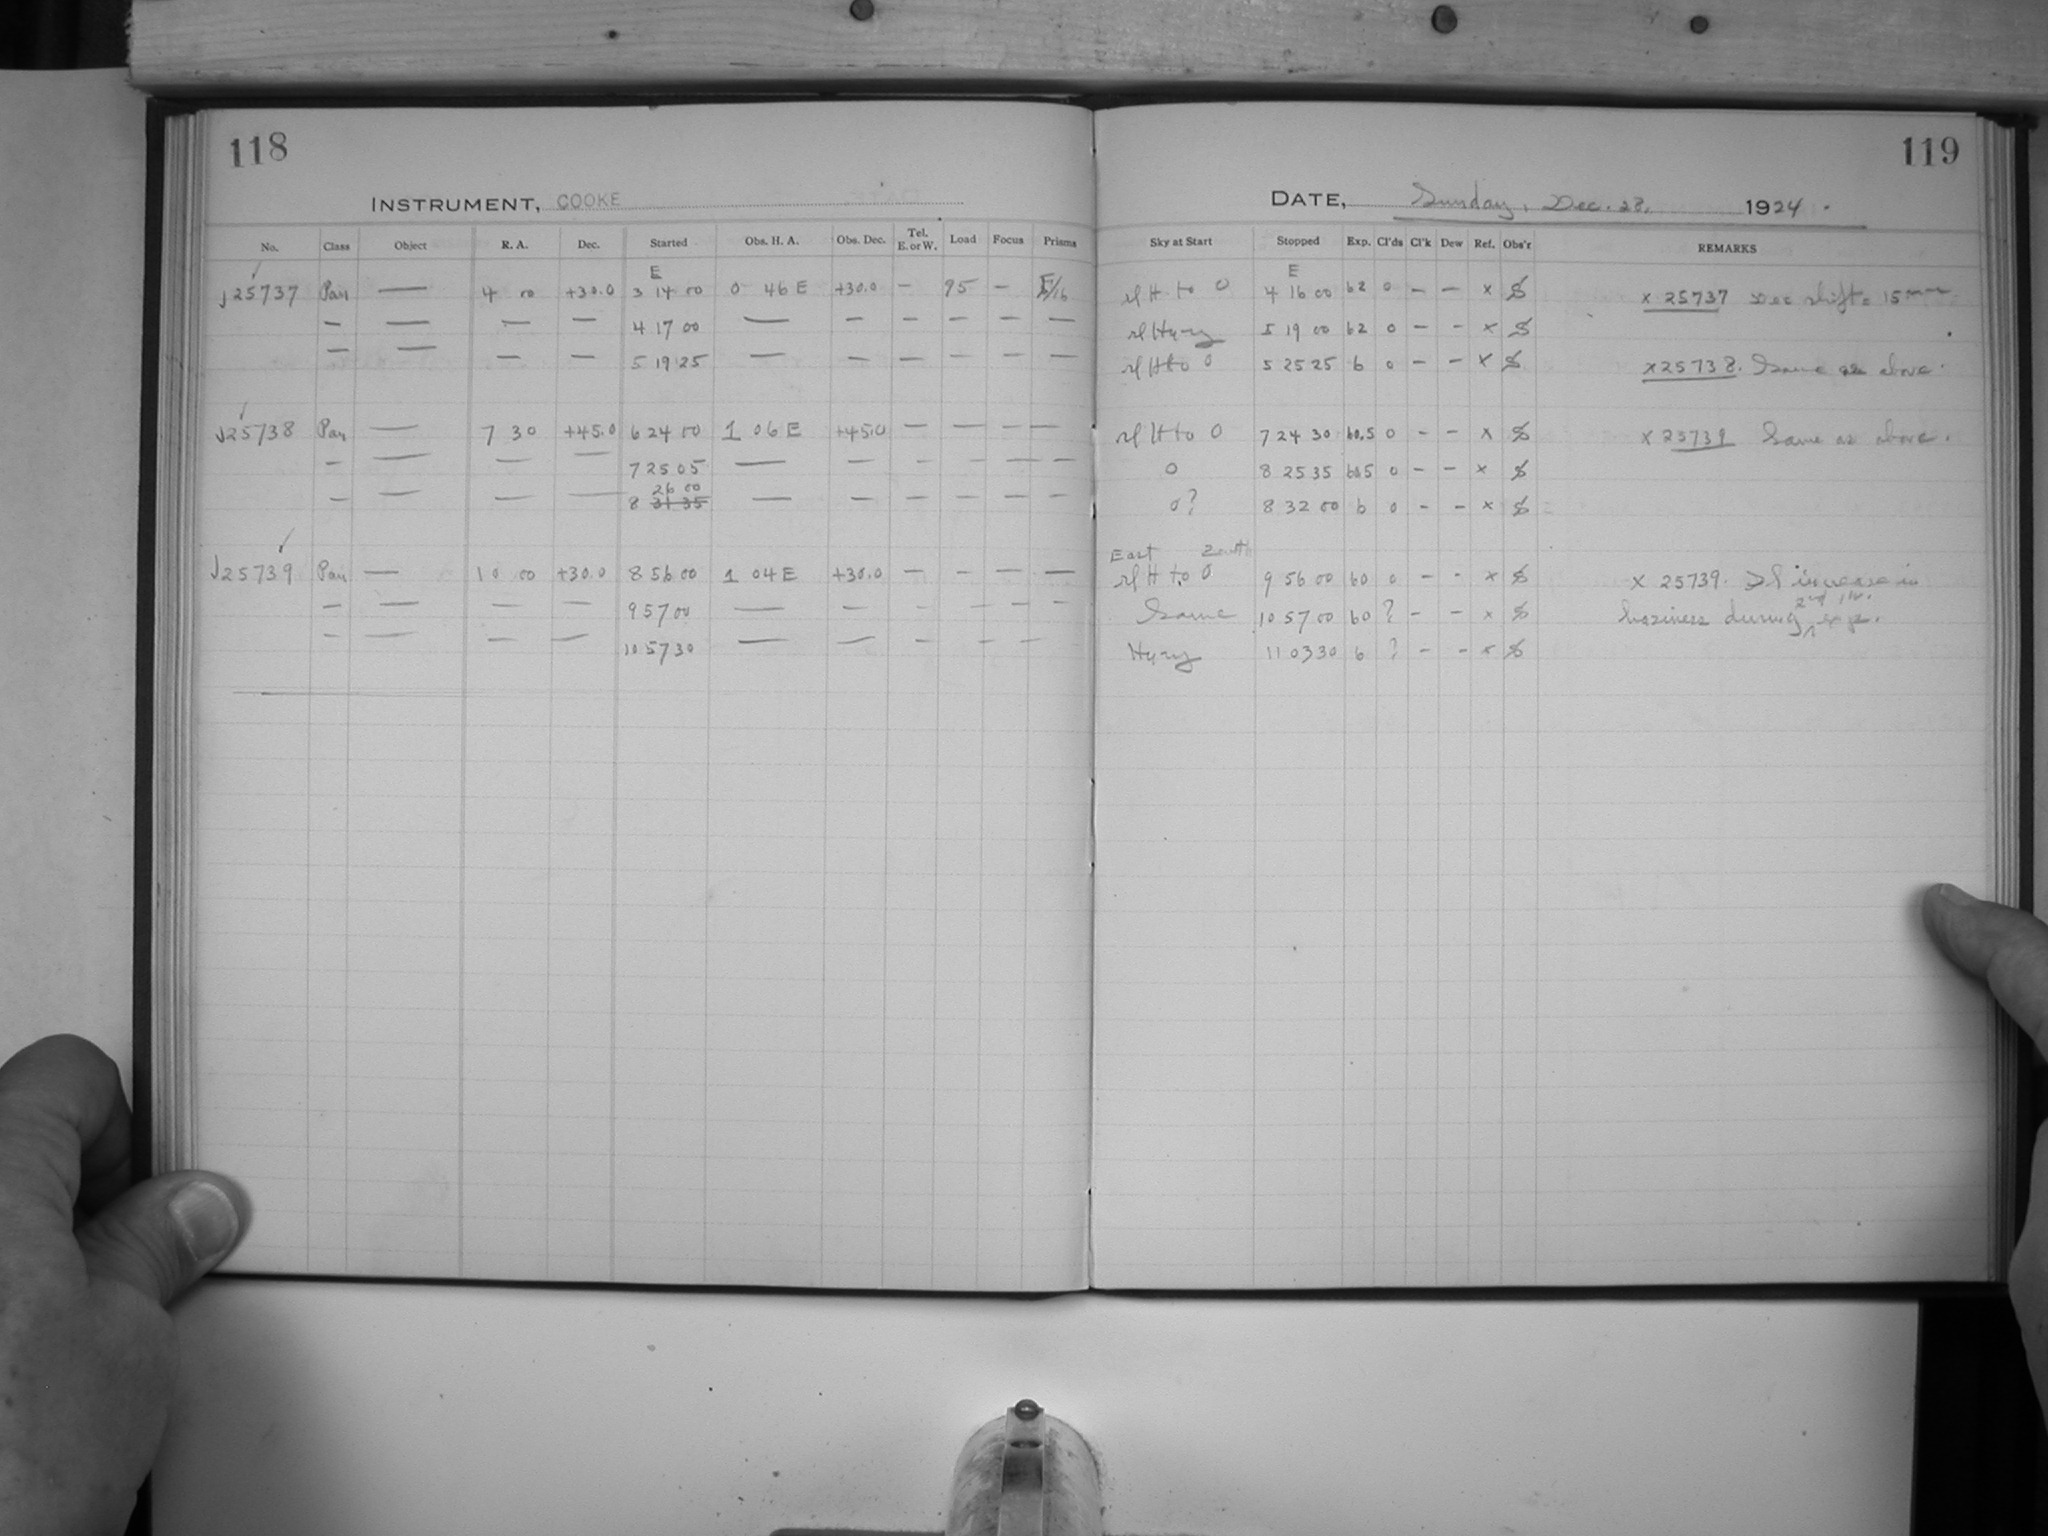 118
INSTRUMENT, COOKE
No. Class Object R. A. Dec. Started Obs. H. A. Obs. Dec. Tel. E. or W. Load Focus Prisms
E
J25737 Pan — 4 00 +30.0 3 14 00 0 46 E +30.0 — 95 — E/16
— — — — 4 17 00 — — — — — —
— — — — 5 19 25 — — — — — —
J25738 Pan — 7 30 +45.0 6 24 00 1 06 E +45.0 — — — —
— — — — 7 25 05 — — — — — —
26 00
— — — — 8 31 35 — — — — — —
J25739 Pan — 10 00 +30.0 8 56 00 1 04 E +30.0 — — — —
— — — — 9 57 00 — — — — — —
— — — — 10 57 30 — — — — —
119
DATE, Sunday, Dec. 28, 1924.
Sky at Start Stopped Exp. Cl'ds Cl'k Dew Ref. Obs'r REMARKS
E
sl H to 0 4 16 00 62 0 — — x S x 25737 Dec shift = 15 mm
sl Hazy 5 19 00 62 0 — — x S
sl H to 0 5 25 25 6 0 — — x S x 25738. Same as above.
sl H to 0 7 24 30 60.5 0 — — x S x 25739 Same as above.
0 8 25 35 60.5 0 — — x S
0? 8 32 00 6 0 — — x S
East Zenith
sl H to 0 9 56 00 60 0 — — x S x 25739. Sl increase in
Same 10 57 00 60 ? — — x S haziness during 2nd exp.
Hazy 11 03 30 6 ? — — x S